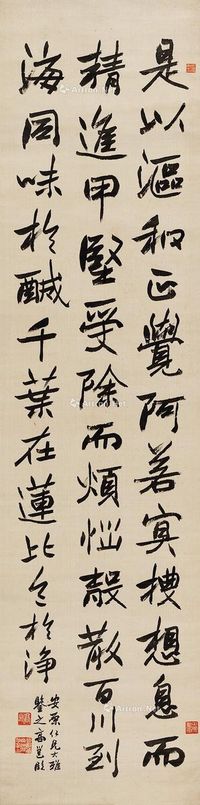 是以漚和正覺阿若冥樓想息而
精進甲堅受除而煩惱殼散百川到
海同味於醎千葉在蓮比色於淨
安原仁兄大雅
鑒之 高邕